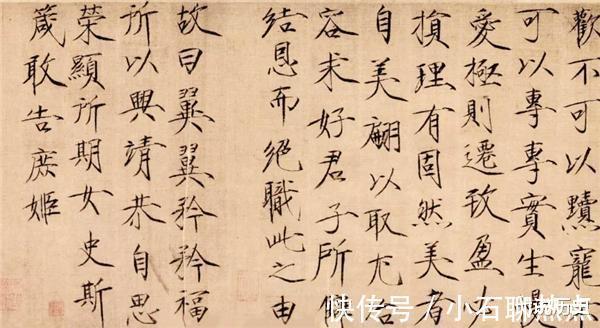 歡不可以黷寵
可以專專實生
愛極則遷致盈必
損理有固然美者
自美翩以取尤冶
容求好君子所
結恩而絕職此之由
故曰翼翼矜矜福
所以興靖恭自思
榮顯所期女史斯
箴敢告庶姬
快传号/小石聊